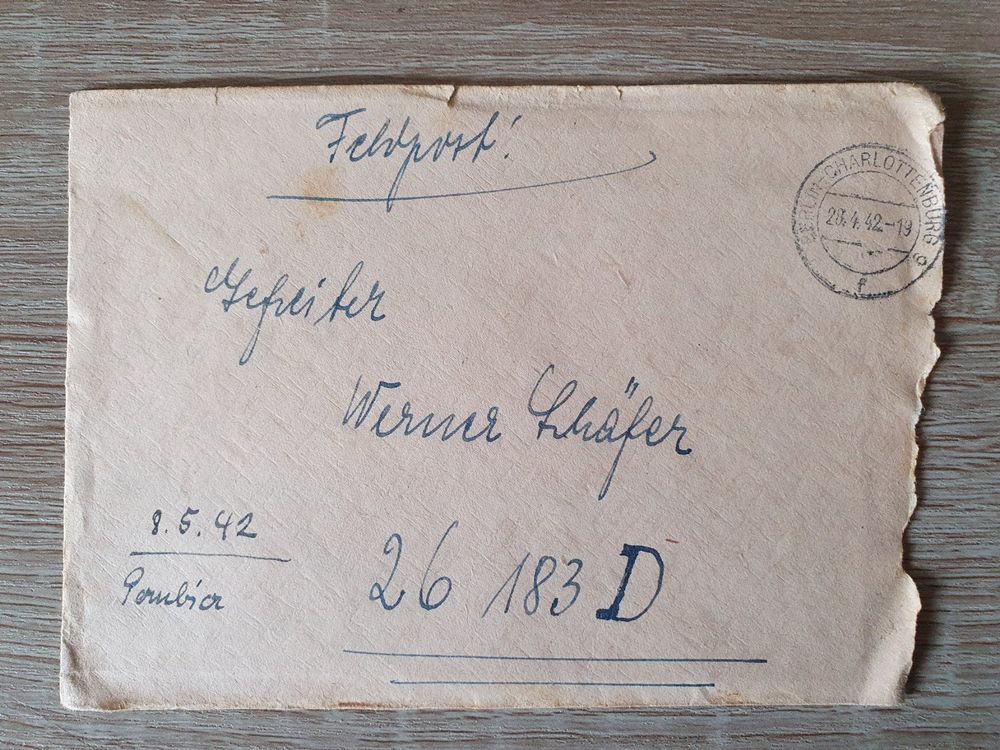 Feldpost!
BERLIN-CHARLOTTENBURG 9
28.4.42.-19
f
Gefreiter
Werner Schäfer
8.5.42
26 183 D